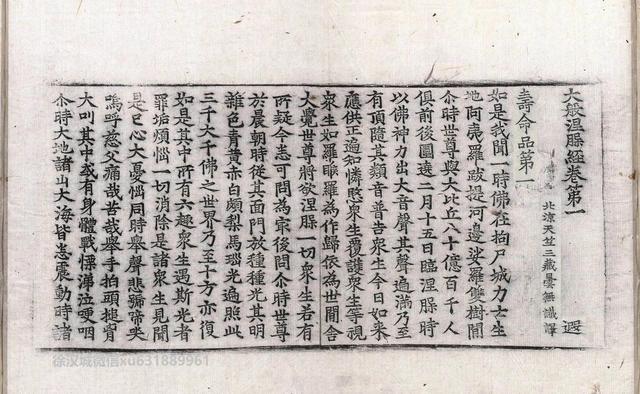 大般涅槃經卷第一
北涼天竺三藏曇無讖譯
遐
壽命品第一
如是我聞一時佛在拘尸城力士生
地阿夷羅跋提河邊娑羅雙樹間
尒時世尊與大比丘八十億百千人
俱前後圍遶二月十五日臨涅槃時
以佛神力出大音聲其聲遍滿乃至
有頂隨其類音普告衆生今日如来
應供正遍知憐愍衆生覆護衆生等視
衆生如羅睺羅爲作歸依爲世間舍
大覺世尊將欲涅槃一切衆生若有
所疑今悉可問爲㝡後問尒時世尊
於晨朝時從其面門放種種光其明
雜色青黄赤白頗梨馬瑙光遍照此
三千大千佛之世界乃至十方亦復
如是其中所有六趣衆生遇斯光者
罪垢煩惱一切消除是諸衆生見聞
是已心大憂惱同時舉聲悲號啼哭
嗚呼慈父痛哉苦哉舉手拍頭搥胷
大叫其中或有身體戰慄涕泣哽咽
尒時大地諸山大海皆悉震動時諸
徐汉城微信xu631889961